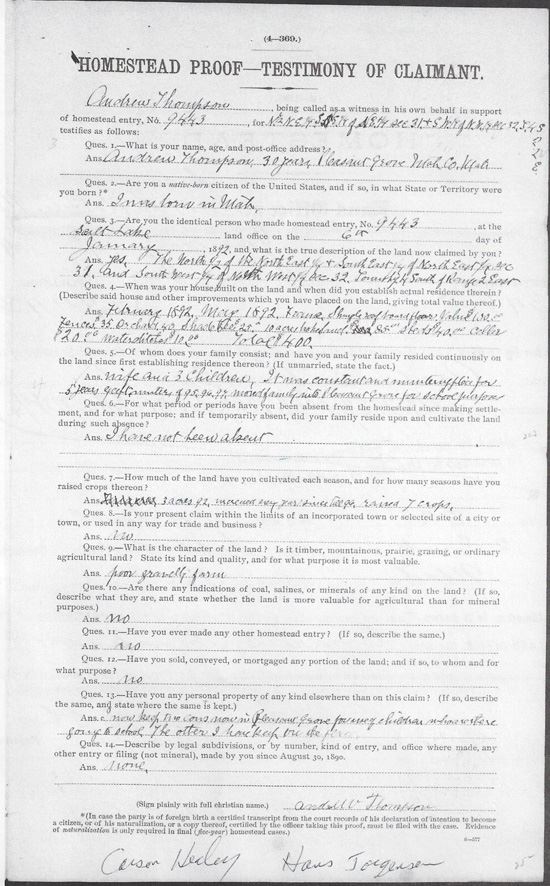 (4—369.)
HOMESTEAD PROOF—TESTIMONY OF CLAIMANT.
Andrew Thompson, being called as a witness in his own behalf in support
of homestead entry, No. 9443, for
testifies as follows:
Ques. 1.—What is your name, age, and post-office address?
Ans. Andrew Thompson, 30 years, Pleasant Grove Utah Co. Utah
Ques. 2.—Are you a native-born citizen of the United States, and if so, in what State or Territory were
you born?*
Ans. I was born in Utah,
Ques. 3.—Are you the identical person who made homestead entry, No. 9443, at the
Salt Lake land office on the 6th day of
January, 1892, and what is the true description of the land now claimed by you?
Ans. Yes, The North 1/2 of the North East 1/4 & South East 1/4 of North East 1/4 Sec
31, and South West 1/4 of North West 1/4 Sec 32, Township 4 South of Range 2 East
Ques. 4.—When was your house built on the land and when did you establish actual residence therein?
(Describe said house and other improvements which you have placed on the land, giving total value thereof.)
Ans. February 1892, May 1892. Frame, Shingle roof board floor, Value
Fences 35. Orchard 40.
Total $400.
Ques. 5.—Of whom does your family consist; and have you and your family resided continuously on
the land since first establishing residence thereon? (If unmarried, state the fact.)
Ans. Wife and 3 Children, It was constant and
5 years except winters of 95, 96, 97, moved family into Pleasant Grove for school purpose
Ques. 6.—For what period or periods have you been absent from the homestead since making settle-
ment, and for what purpose; and if temporarily absent, did your family reside upon and cultivate the land
during such absence?
Ans. I have not been absent
Ques. 7.—How much of the land have you cultivated each season, and for how many seasons have you
raised crops thereon?
Ans. 3 acres 92, increased every year since raised 7 crops.
Ques. 8.—Is your present claim within the limits of an incorporated town or selected site of a city or
town, or used in any way for trade and business?
Ans. No
Ques. 9.—What is the character of the land? Is it timber, mountainous, prairie, grazing, or ordinary
agricultural land? State its kind and quality, and for what purpose it is most valuable.
Ans. poor gravelly farm
Ques. 10.—Are there any indications of coal, salines, or minerals of any kind on the land? (If so,
describe what they are, and state whether the land is more valuable for agricultural than for mineral
purposes.)
Ans. no
Ques. 11.—Have you ever made any other homestead entry? (If so, describe the same.)
Ans. no
Ques. 12.—Have you sold, conveyed, or mortgaged any portion of the land; and if so, to whom and for
what purpose?
Ans. no.
Ques. 13.—Have you any personal property of any kind elsewhere than on this claim? (If so, describe
the same, and state where the same is kept.)
Ans. now keep two cows now in Pleasant Grove for my children who are there
going to school, The other I have keep on the farm
Ques. 14.—Describe by legal subdivisions, or by number, kind of entry, and office where made, any
other entry or filing (not mineral), made by you since August 30, 1890.
Ans. None.
(Sign plainly with full christian name.) Andrew Thompson
*(In case the party is of foreign birth a certified transcript from the court records of his declaration of intention to become
a citizen, or of his naturalization, or a copy thereof, certified by the officer taking this proof, must be filed with the case. Evidence
of naturalization is only required in final (five-year) homestead cases.)
Carson Healey Hans Jorgensen